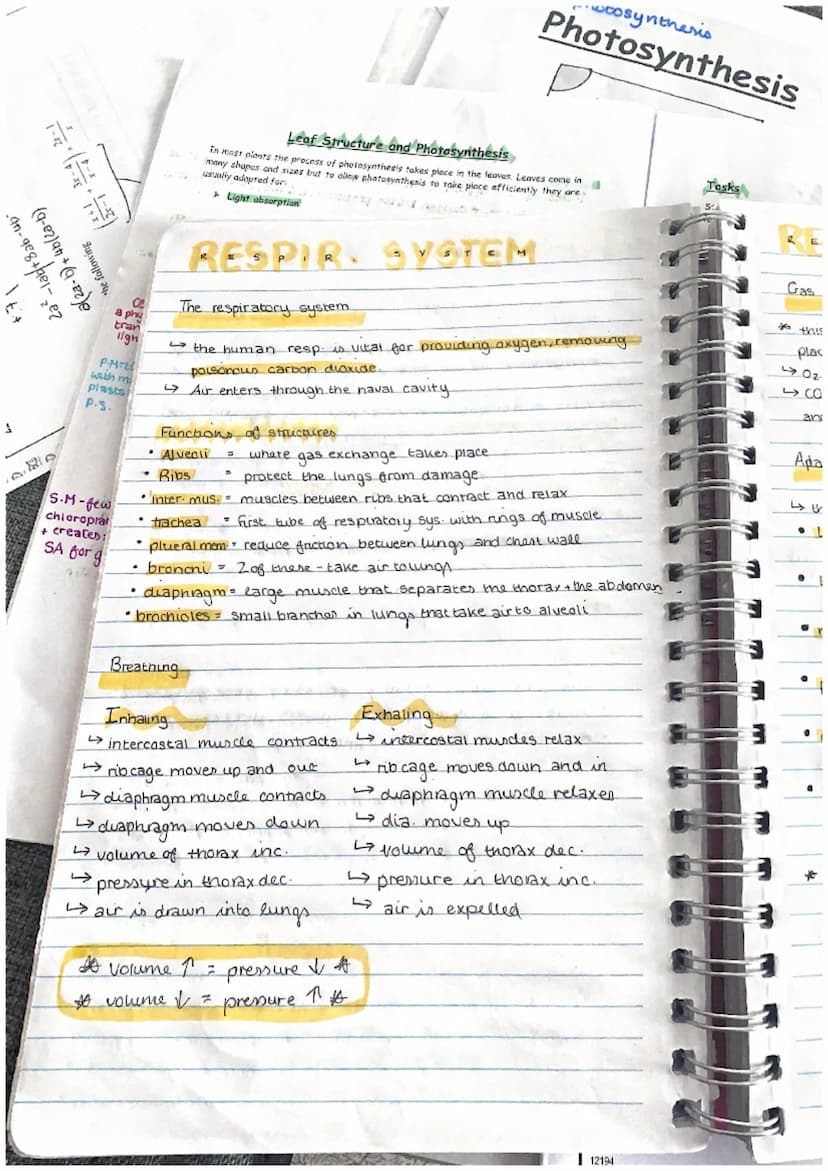 Photosynthesis
Photosynthesis
Leaf Structure and Photosynthesis
In most plants the process of photosynthesis takes place in the leaves. Leaves come in
many shapes and sizes but to allow photosynthesis to take place efficiently they are
usually adapted for:
➤ Light absorption
Tasks
RESPIR. SYSTEM
The respiratory system
↳ the human resp. is vital for providing oxygen, removing
poisonous carbon dioxide.
↳ Air enters through the naval cavity
Functions of structures
• Alveoli = where gas exchange takes place
• Ribs = protect the lungs from damage
• inter. mus. = muscles between ribs that contract and relax
• trachea = first tube of respiratory sys. with rings of muscle
• plueral mem = reduce friction between lungs and chest wall
• bronchi = 2 of these - take air to lungs
• diaphragm = large muscle that separates the thorax + the abdomen.
• brochioles = small branches in lungs that take air to alveoli
Breathing
Inhaling
↳ intercostal muscle contracts
↳ ribcage moves up and out
↳ diaphragm muscle contracts
↳ diaphragm moves down
↳ volume of thorax inc.
↳ pressure in thorax dec.
↳ air is drawn into lungs
Exhaling
↳ intercostal muscles relax
↳ ribcage moves down and in
↳ diaphragm muscle relaxes
↳ dia. moves up
↳ volume of thorax dec.
↳ pressure in thorax inc.
↳ air is expelled
* volume ↑ = pressure ↓ *
* volume ↓ = pressure ↑ *
with m
plasts
p.s.
S.M - few
+ creates
SA for g
RE
Gas
* this
plac
↳ O2
↳ CO
an
Ada
12194